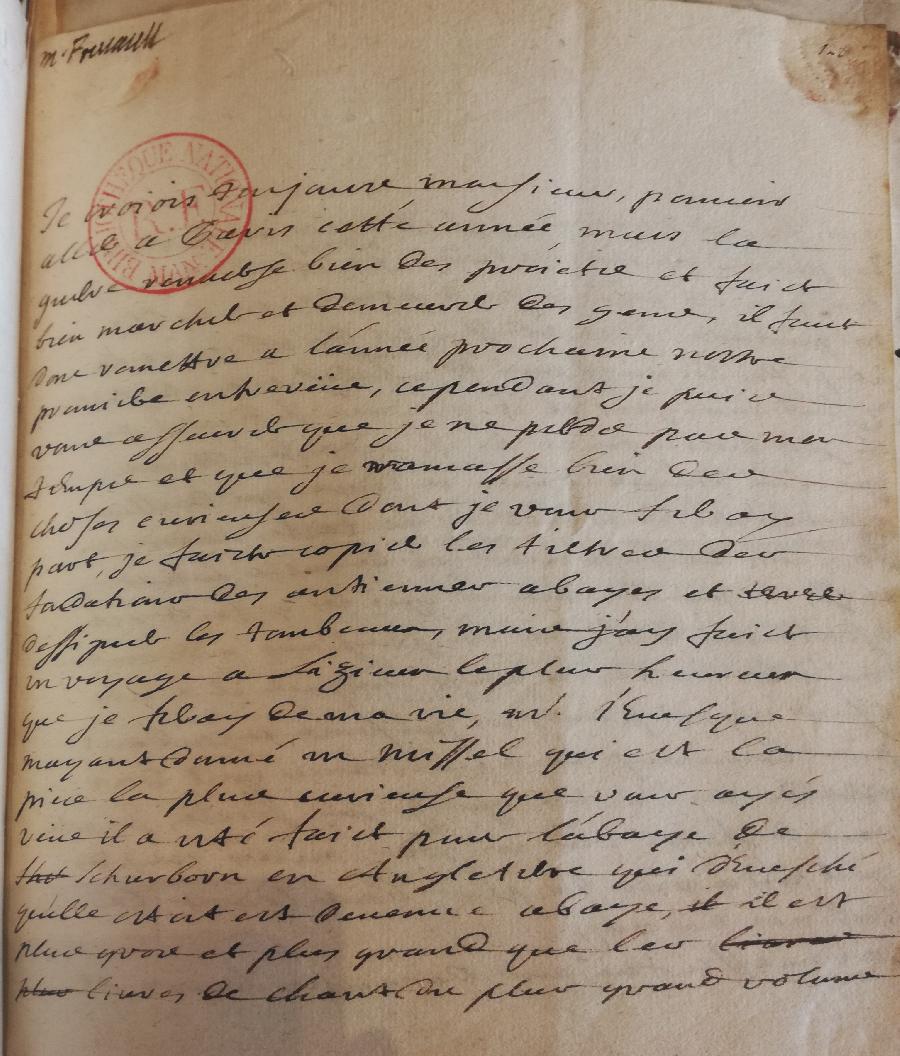 m. Foucault
BIBLIOTHEQUE NATIONALE MAN.
R.F.
Je croiois toujours monsieur, pouvoir
aller a Paris cette année mais la
guerre renverse bien des proiets et faict
bien marcher et demeurer des gens, il faut
donc remettre a l'année prochaine nostre
premiere entreveüe, cependant je puis
vous asseurer que je ne perds pas mon
temps et que je ramasse bien des
choses curieuses dont je vous feray
part, je faicts copier les tiltres des
fondations des antiennes abayes et
dessigner les tombeaux, mais j'ay faict
un voyage a Lizieux le plus heureux
que je feray de ma vie, mr. l'Euesque
mayant donné un missel qui est la
piece la plus curieuse que vous ayés
veüe il a esté faict pour l'abaye de
Schurborn en Angleterre qui d'Euesché
qu'elle estoit est devenue abaye, il est
plus gros et plus grand que les
liures de chant du plus grand volume